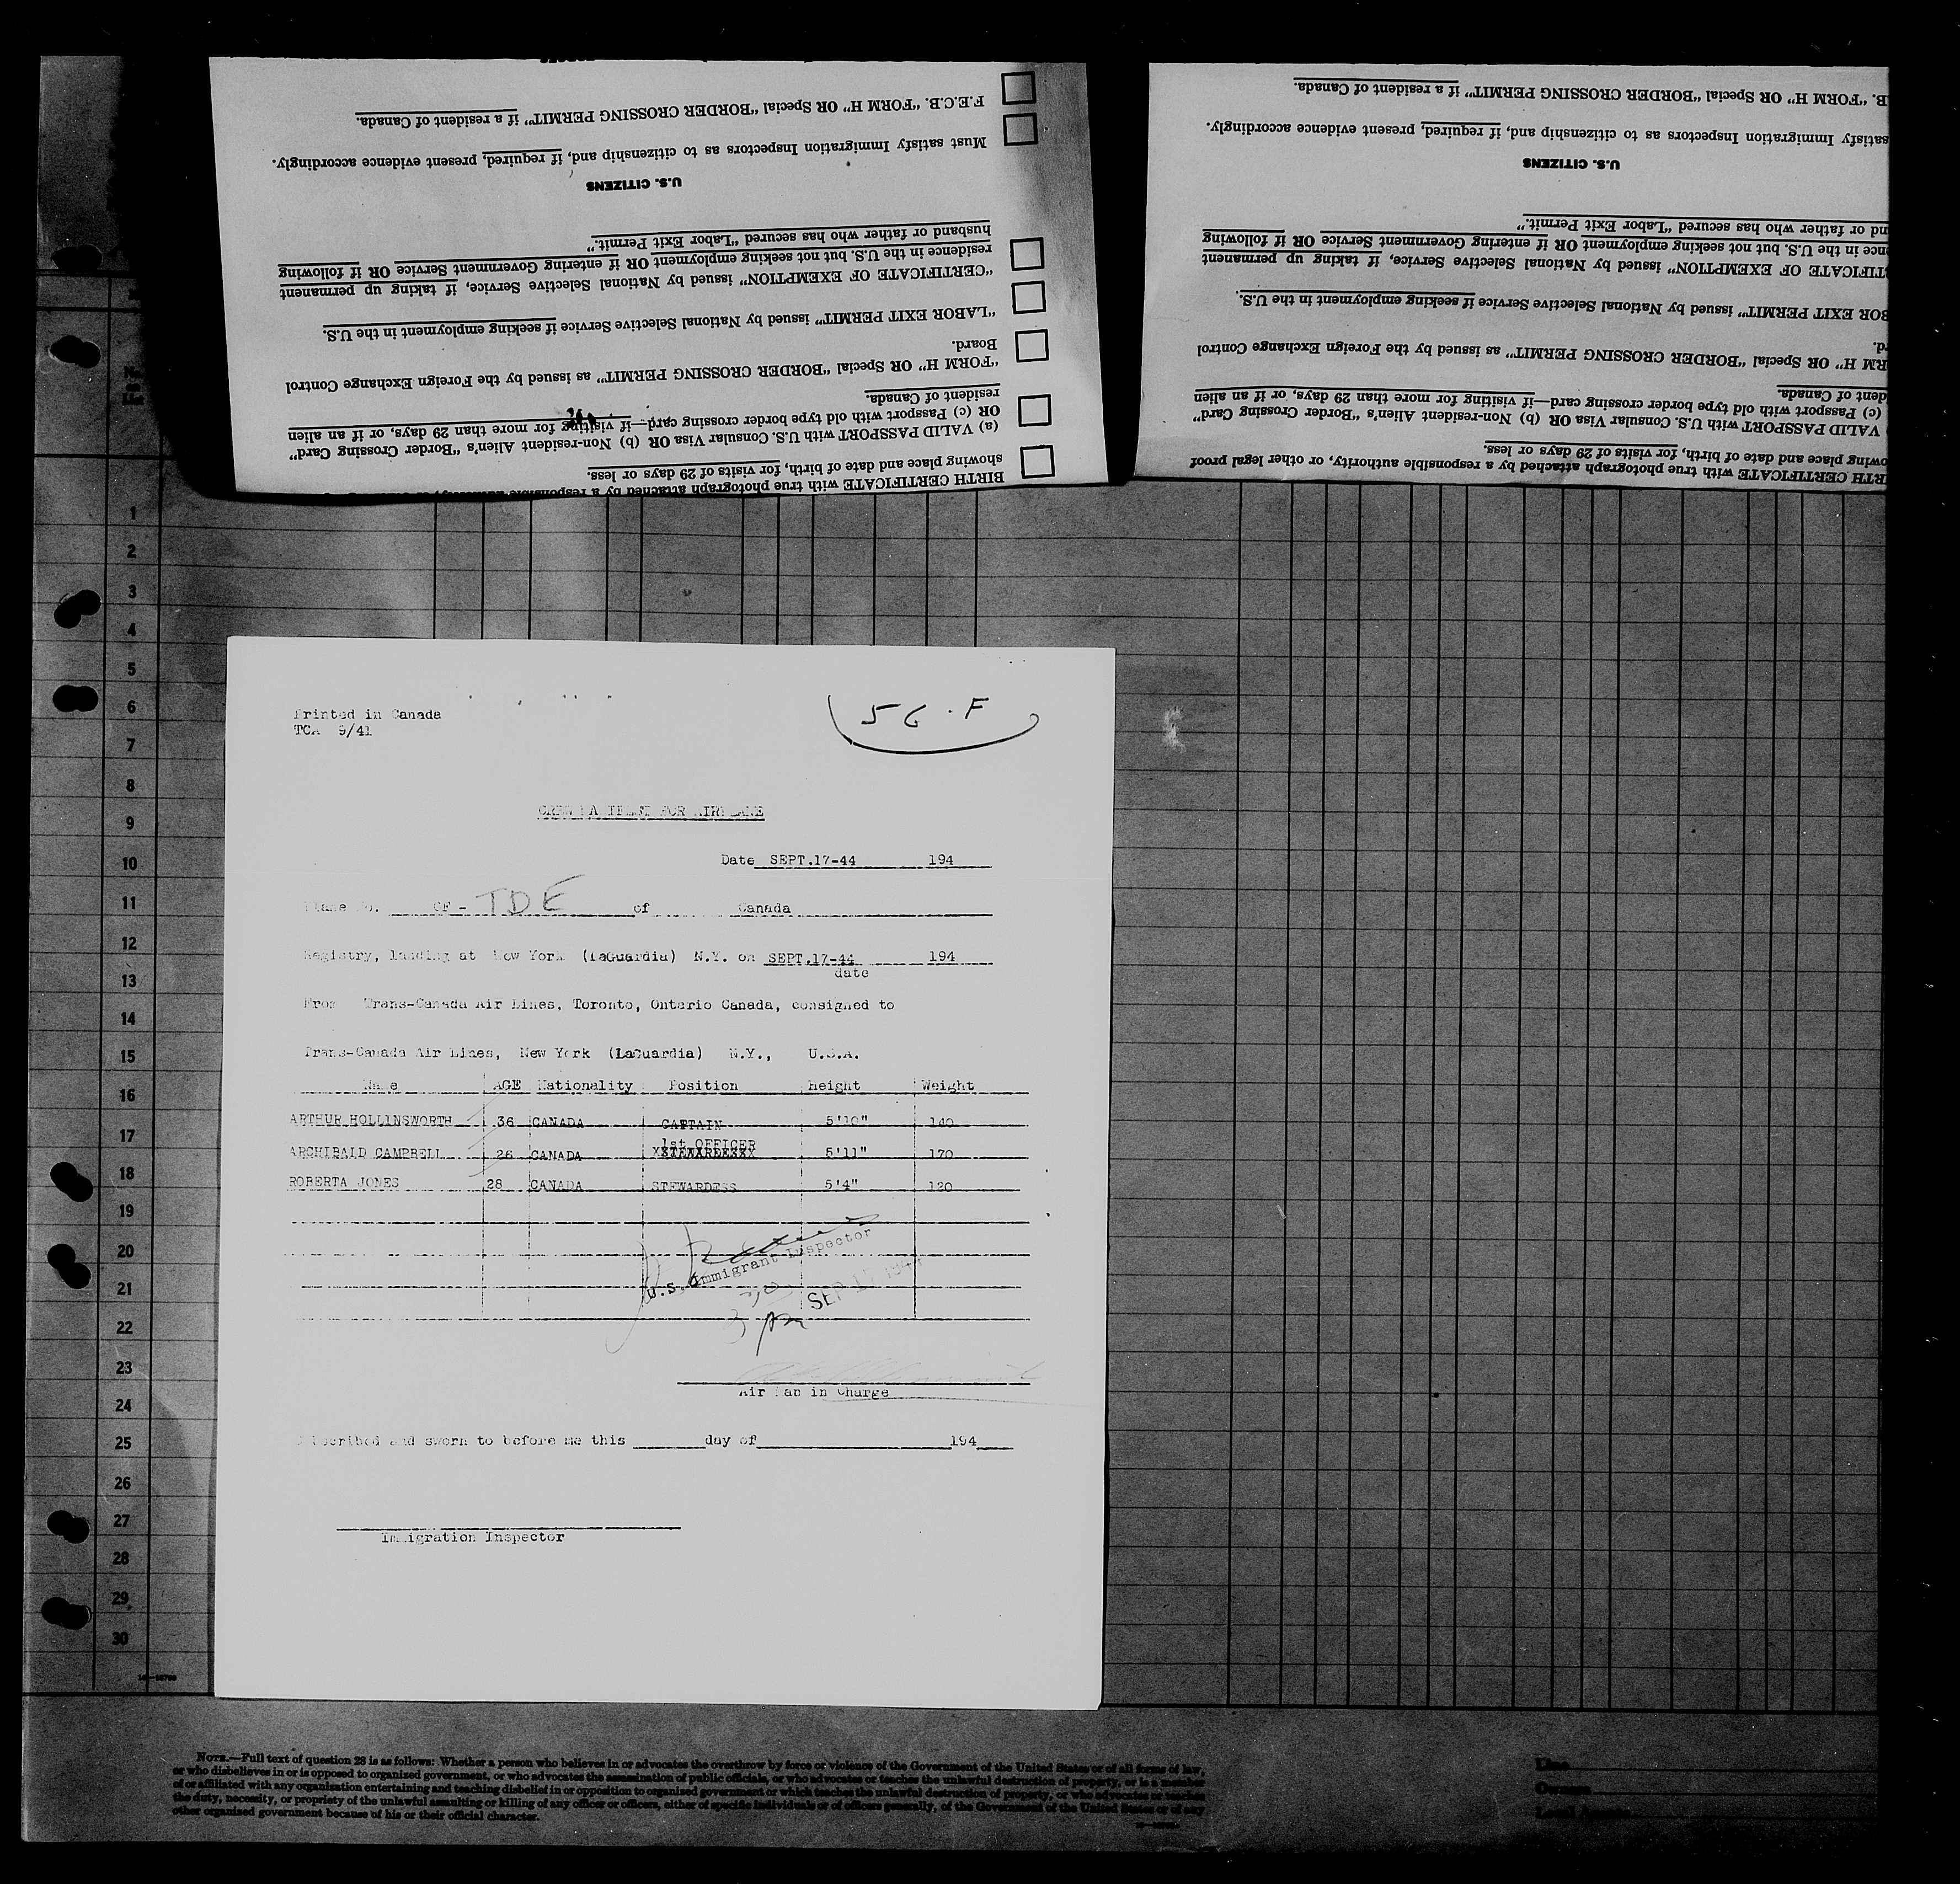 F.E.C.B. "FORM H" OR Special "BORDER CROSSING PERMIT" if a resident of Canada.
Must satisfy Immigration Inspectors as to citizenship and, if required, present evidence accordingly.
U.S. CITIZENS
husband or father who has secured "Labor Exit Permit."
residence in the U.S. but not seeking employment OR if entering Government Service OR if following
"CERTIFICATE OF EXEMPTION" issued by National Selective Service, if taking up permanent
"LABOR EXIT PERMIT" issued by National Selective Service if seeking employment in the U.S.
Board.
"FORM H" OR Special "BORDER CROSSING PERMIT" as issued by the Foreign Exchange Control
resident of Canada.
OR (c) Passport with old type border crossing card—if visiting for more than 29 days, or if an alien
(a) VALID PASSPORT with U.S. Consular Visa OR (b) Non-resident Alien's "Border Crossing Card"
showing place and date of birth, for visits of 29 days or less.
BIRTH CERTIFICATE with true photograph attached by a responsible
B. "FORM H" OR Special "BORDER CROSSING PERMIT" if a resident of Canada.
satisfy Immigration Inspectors as to citizenship and, if required, present evidence accordingly.
U.S. CITIZENS
nd or father who has secured "Labor Exit Permit."
nce in the U.S. but not seeking employment OR if entering Government Service OR if following
TIFICATE OF EXEMPTION" issued by National Selective Service, if taking up permanent
BOR EXIT PERMIT" issued by National Selective Service if seeking employment in the U.S.
rd.
RM H" OR Special "BORDER CROSSING PERMIT" as issued by the Foreign Exchange Control
ident of Canada.
(c) Passport with old type border crossing card—if visiting for more than 29 days, or if an alien
) VALID PASSPORT with U.S. Consular Visa OR (b) Non-resident Alien's "Border Crossing Card"
owing place and date of birth, for visits of 29 days or less.
RTH CERTIFICATE with true photograph attached by a responsible authority, or other legal proof
1
2
3
4
5
6
7
8
9
10
11
12
13
14
15
16
17
18
19
20
21
22
23
24
25
26
27
28
29
30
Printed in Canada
TCA 9/41
56.F
CREW MANIFEST FOR AIRPLANE
Date SEPT.17-44 194
Plane No. CF-TDE of Canada
Registry, landing at New York (LaGuardia) N.Y. on SEPT.17-44 194
date
From Trans-Canada Air Lines, Toronto, Ontario Canada, consigned to
Trans-Canada Air Lines, New York (LaGuardia) N.Y., U.S.A.
Name AGE Nationality Position Height Weight
ARTHUR HOLLINSWORTH 36 CANADA CAPTAIN 5'10" 140
1st OFFICER
ARCHIBALD CAMPBELL 26 CANADA 5'11" 170
ROBERTA JONES 28 CANADA STEWARDESS 5'4" 120
U.S. Immigrant Inspector
SEP 17 1944
pm
Air Man in Charge
Subscribed and sworn to before me this day of 194
Immigration Inspector
NOTE.—Full text of question 28 is as follows: Whether a person who believes in or advocates the overthrow by force or violence of the Government of the United States or of all forms of law,
or who disbelieves in or is opposed to organized government, or who advocates the assassination of public officials, or who advocates or teaches the unlawful destruction of property, or is a member
of or affiliated with any organization entertaining and teaching disbelief in or opposition to organized government or which teaches the unlawful destruction of property, or who advocates or teaches
the duty, necessity, or propriety of the unlawful assaulting or killing of any officer or officers, either of specific individuals or of officers generally, of the Government of the United States or of any
other organized government because of his or their official character.
Line
Owners
Local Agents